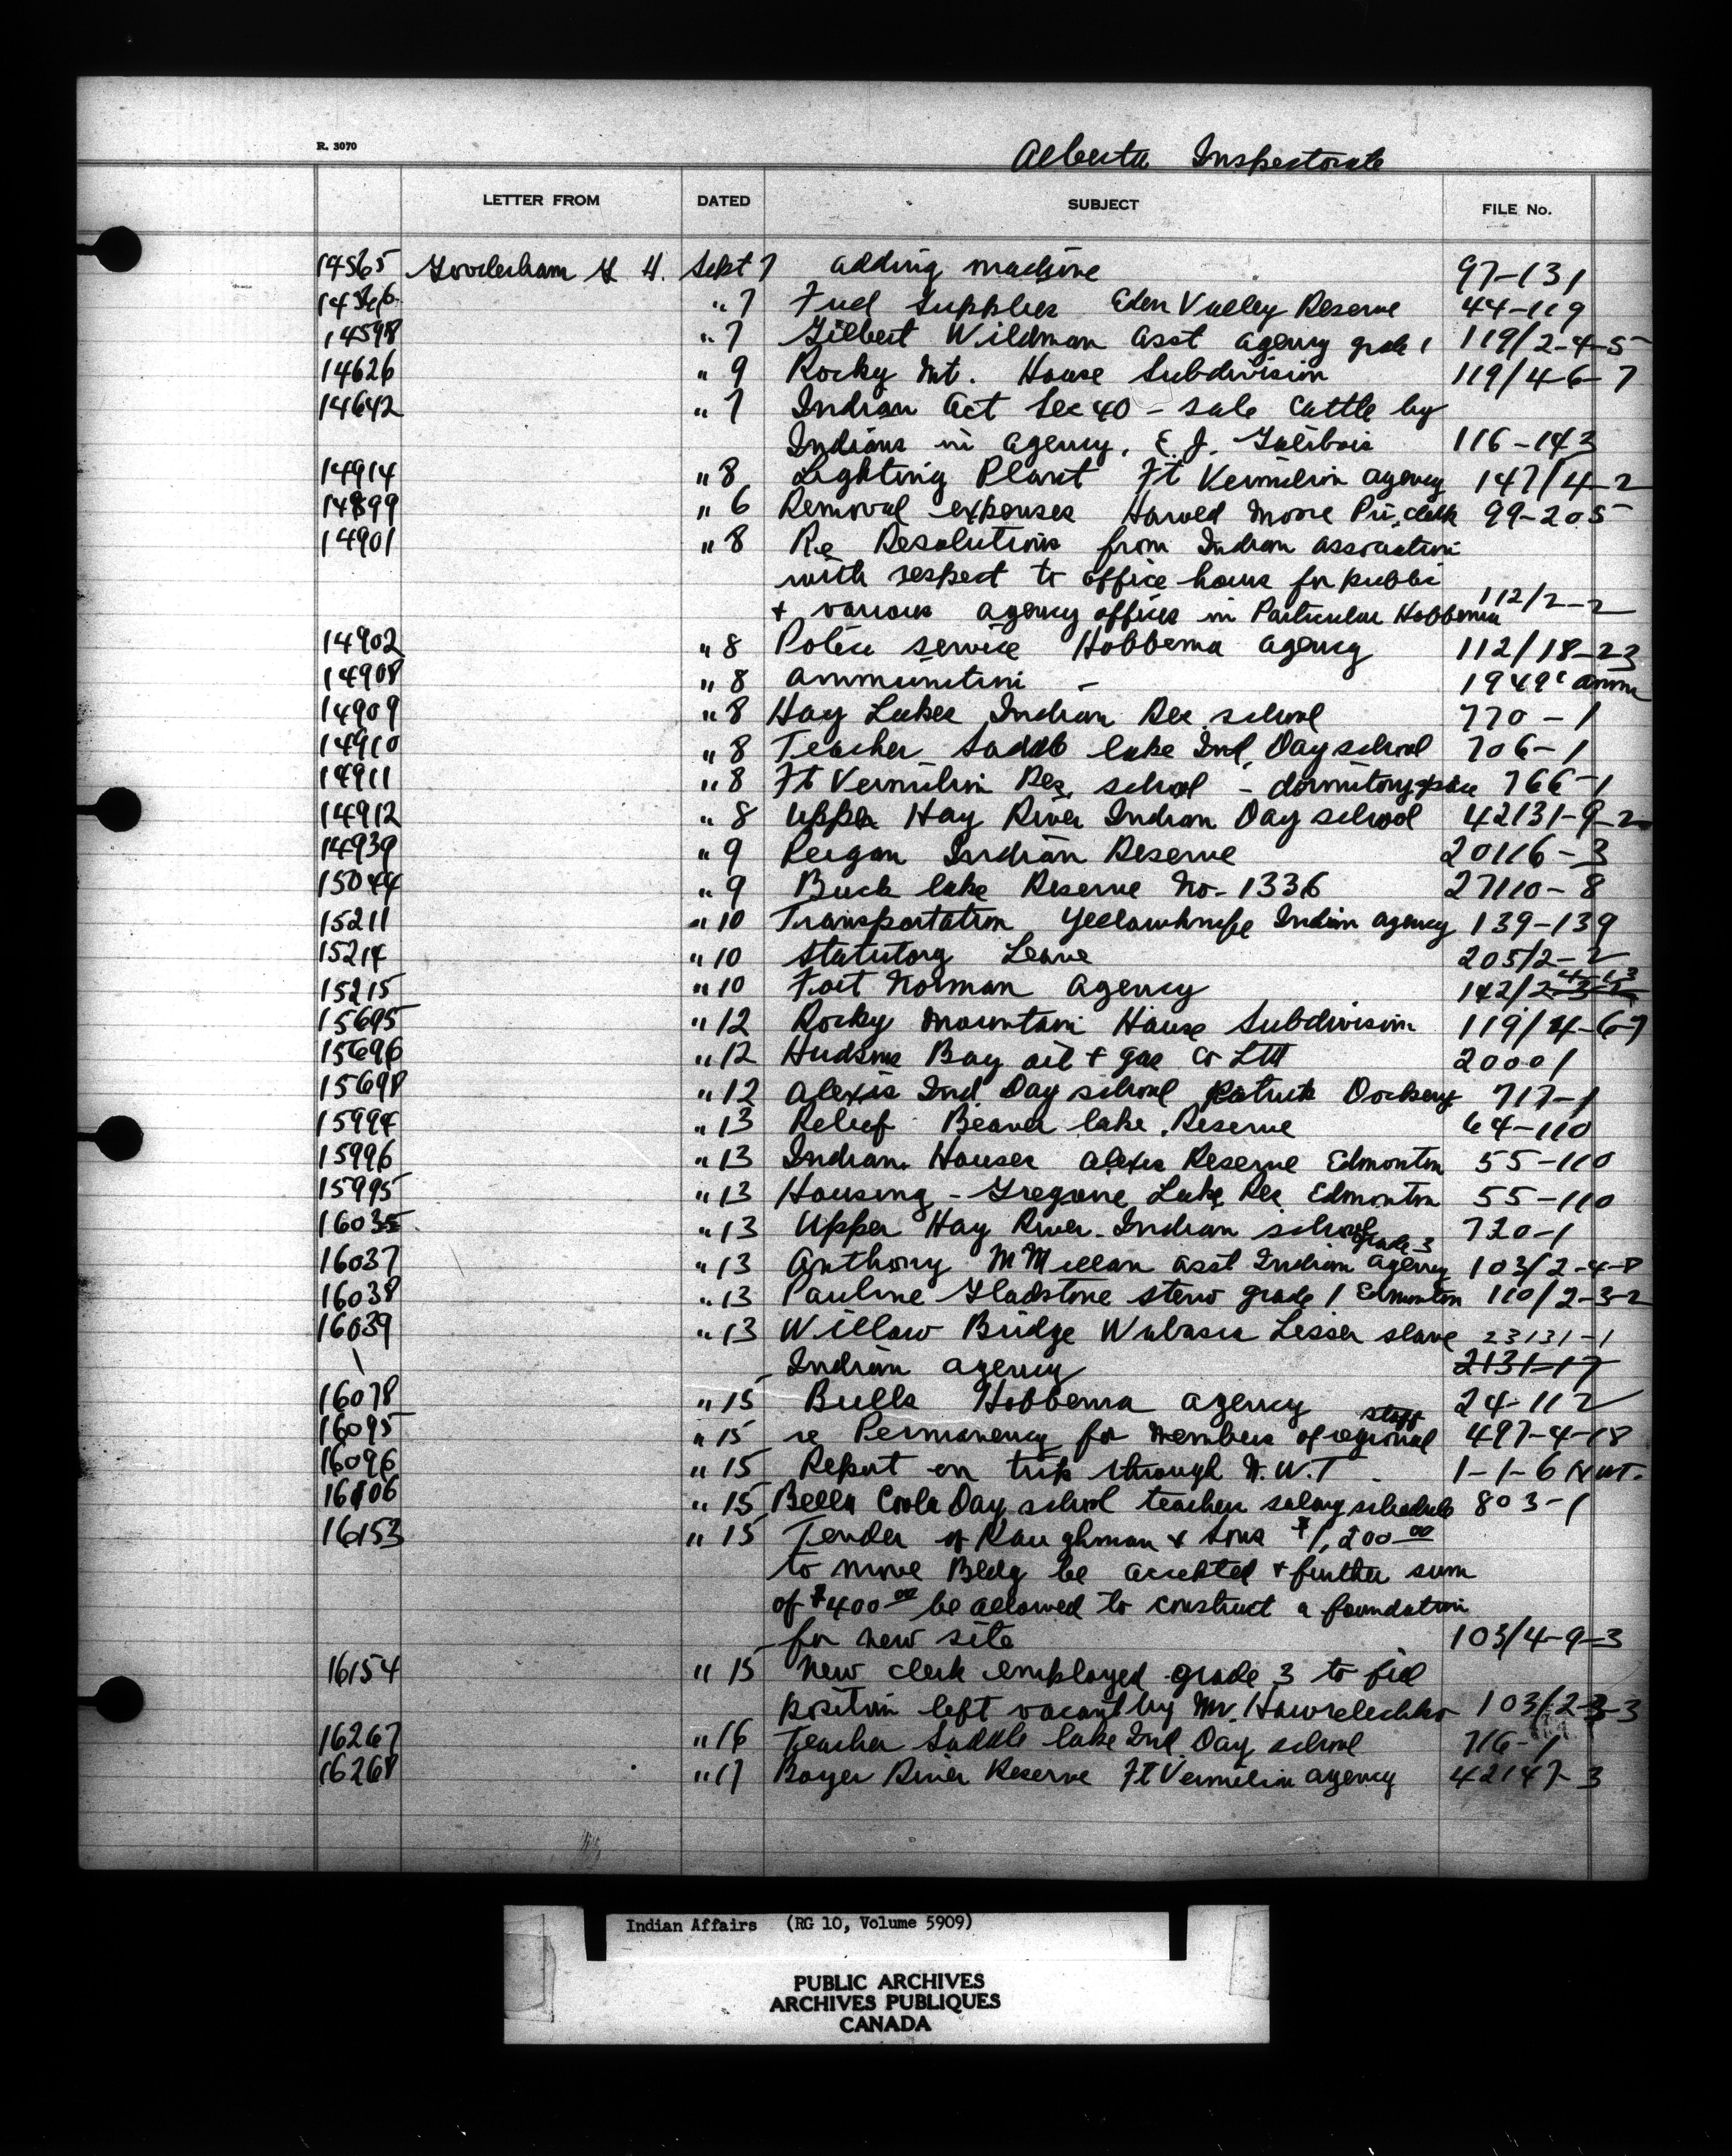 R. 3070
Alberta Inspectorate
LETTER FROM DATED SUBJECT FILE No.
14565 Gooderham G. H. Sept 7 adding machine 97-131
" 7 Fuel Supplies Eden Valley Reserve 44-119
14598 " 7 Gilbert Wildman asst agency grade 1 119/2-4-5
14626 " 9 Rocky Mt. House Subdivision 119/4-6-7
14642 " 7 Indian Act Sec 40 - sale Cattle by
Indians in agency, E. J. Galibois 116-143
14914 " 8 Lighting Plant Ft Vermilion agency 147/4-2
14899 " 6 Removal expenses Moore Pri. clerk 99-205
14901 " 8 Re Resolutions from Indian association
with respect to office hours for public
+ various agency offices in Particular Hobbema 112/2-2
14902 " 8 Police service Hobbema agency 112/18-23
14908 " 8 ammunition - 1949 amm
14909 " 8 Hay Lakes Indian Res school 770-1
14910 " 8 Teacher Saddle lake Ind. Day school 706-1
14911 " 8 Ft Vermilion Res. school - dormitory space 766-1
14912 " 8 Upper Hay River Indian Day school 42131-9-2
14939 " 9 Peigan Indian Reserve 20116-3
15044 " 9 Buck lake Reserve No. 133B 27110-8
15211 " 10 Transportation Yellowknife Indian agency 139-139
15214 " 10 Statutory Leave 205/2-2
15215 " 10 Fort Norman Agency 142/2-4-13
15695 " 12 Rocky Mountain House Subdivision 119/4-6-7
15696 " 12 Hudsons Bay oil + gas Co Ltd 20001
15698 " 12 Alexis Ind Day school Patrick Dockery 717-1
15994 " 13 Relief Beaver lake Reserve 64-110
15996 " 13 Indian Houses Alexis Reserve Edmonton 55-110
15995 " 13 Housing - Gregoire Lake Res Edmonton 55-110
16035 " 13 Upper Hay River Indian school 720-1
16037 " 13 Anthony McMillan asst Indian agency grade 3 103/2-4-8
16038 " 13 Pauline Gladstone steno grade 1 Edmonton 110/2-3-2
16039 " 13 Willow Bridge Wabasca Lesser slave 23131-1
Indian agency 2131-17
16078 " 15 Bulls Hobbema agency 24-112
16095 " 15 re Permanency for members of regional staff 497-4-18
16096 " 15 Report on trip through N.W.T. 1-1-6 NWT.
16106 " 15 Bella Coola Day school teacher salary schedule 803-1
16153 " 15 Tender of & Sons $1,200.00
to move Bldg be accepted + further sum
of $400.00 be allowed to construct a foundation
for new site 103/4-9-3
16154 " 15 New clerk employed grade 3 to fill
position left vacant by Mr. Hawrelechko 103/2-3-3
16267 " 16 Teacher Saddle lake Ind. Day school 716-1
16268 " 17 Boyer River Reserve Ft Vermilion agency 42147-3
Indian Affairs (RG 10, Volume 5909)
PUBLIC ARCHIVES
ARCHIVES PUBLIQUES
CANADA